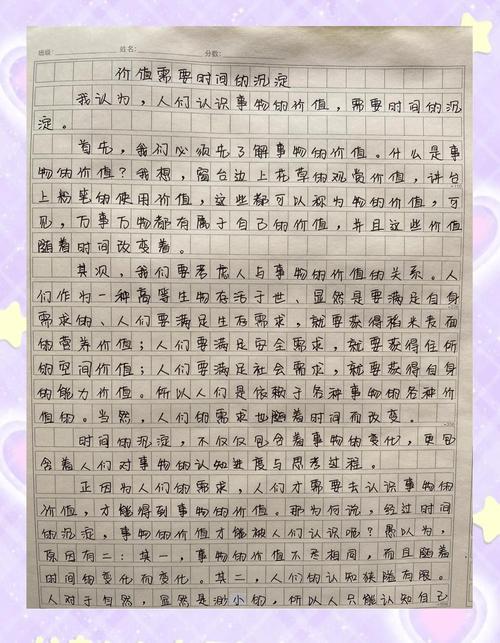 班级: 姓名: 分数:
价值需要时间的沉淀
我认为，人们认识事物的价值，需要时间的沉
淀。
首先，我们必须先了解事物的价值。什么是事
物的价值？我想，窗台边上花草的观赏价值，讲台
上粉笔的使用价值，这些都可以称为物的价值，可
见，万事万物都有属于自己的价值，并且这些价值
随着时间改变着。
其次，我们要考虑人与事物的价值的关系。人
们作为一种高等生物存活于世、显然是要满足自身
需求的、人们要满足生存需求，就要获得稻米表面
的营养价值；人们要满足安全需求，就要获得住所
的空间价值；人们要满足社会需求，就要获得自身
的能力价值。所以人们是依赖于各种事物的各种价
值的。当然，人们的需求也随着时间而改变。
时间的沉淀，不仅仅包含着事物的变化，更包
含着人们对事物的认知进度与思考过程。
正因为人们的需求，人们才需要去认识事物的
价值，才能得到事物的价值。那为何说，经过时间
的沉淀，事物的价值才能被人们认识呢？愚以为，
原因有二：其一，事物的价值不尽相同，而且随着
时间的变化而变化。其二，人们的认知狭隘有限。
人对于自然，显然是渺小的，所以人只能认知自己